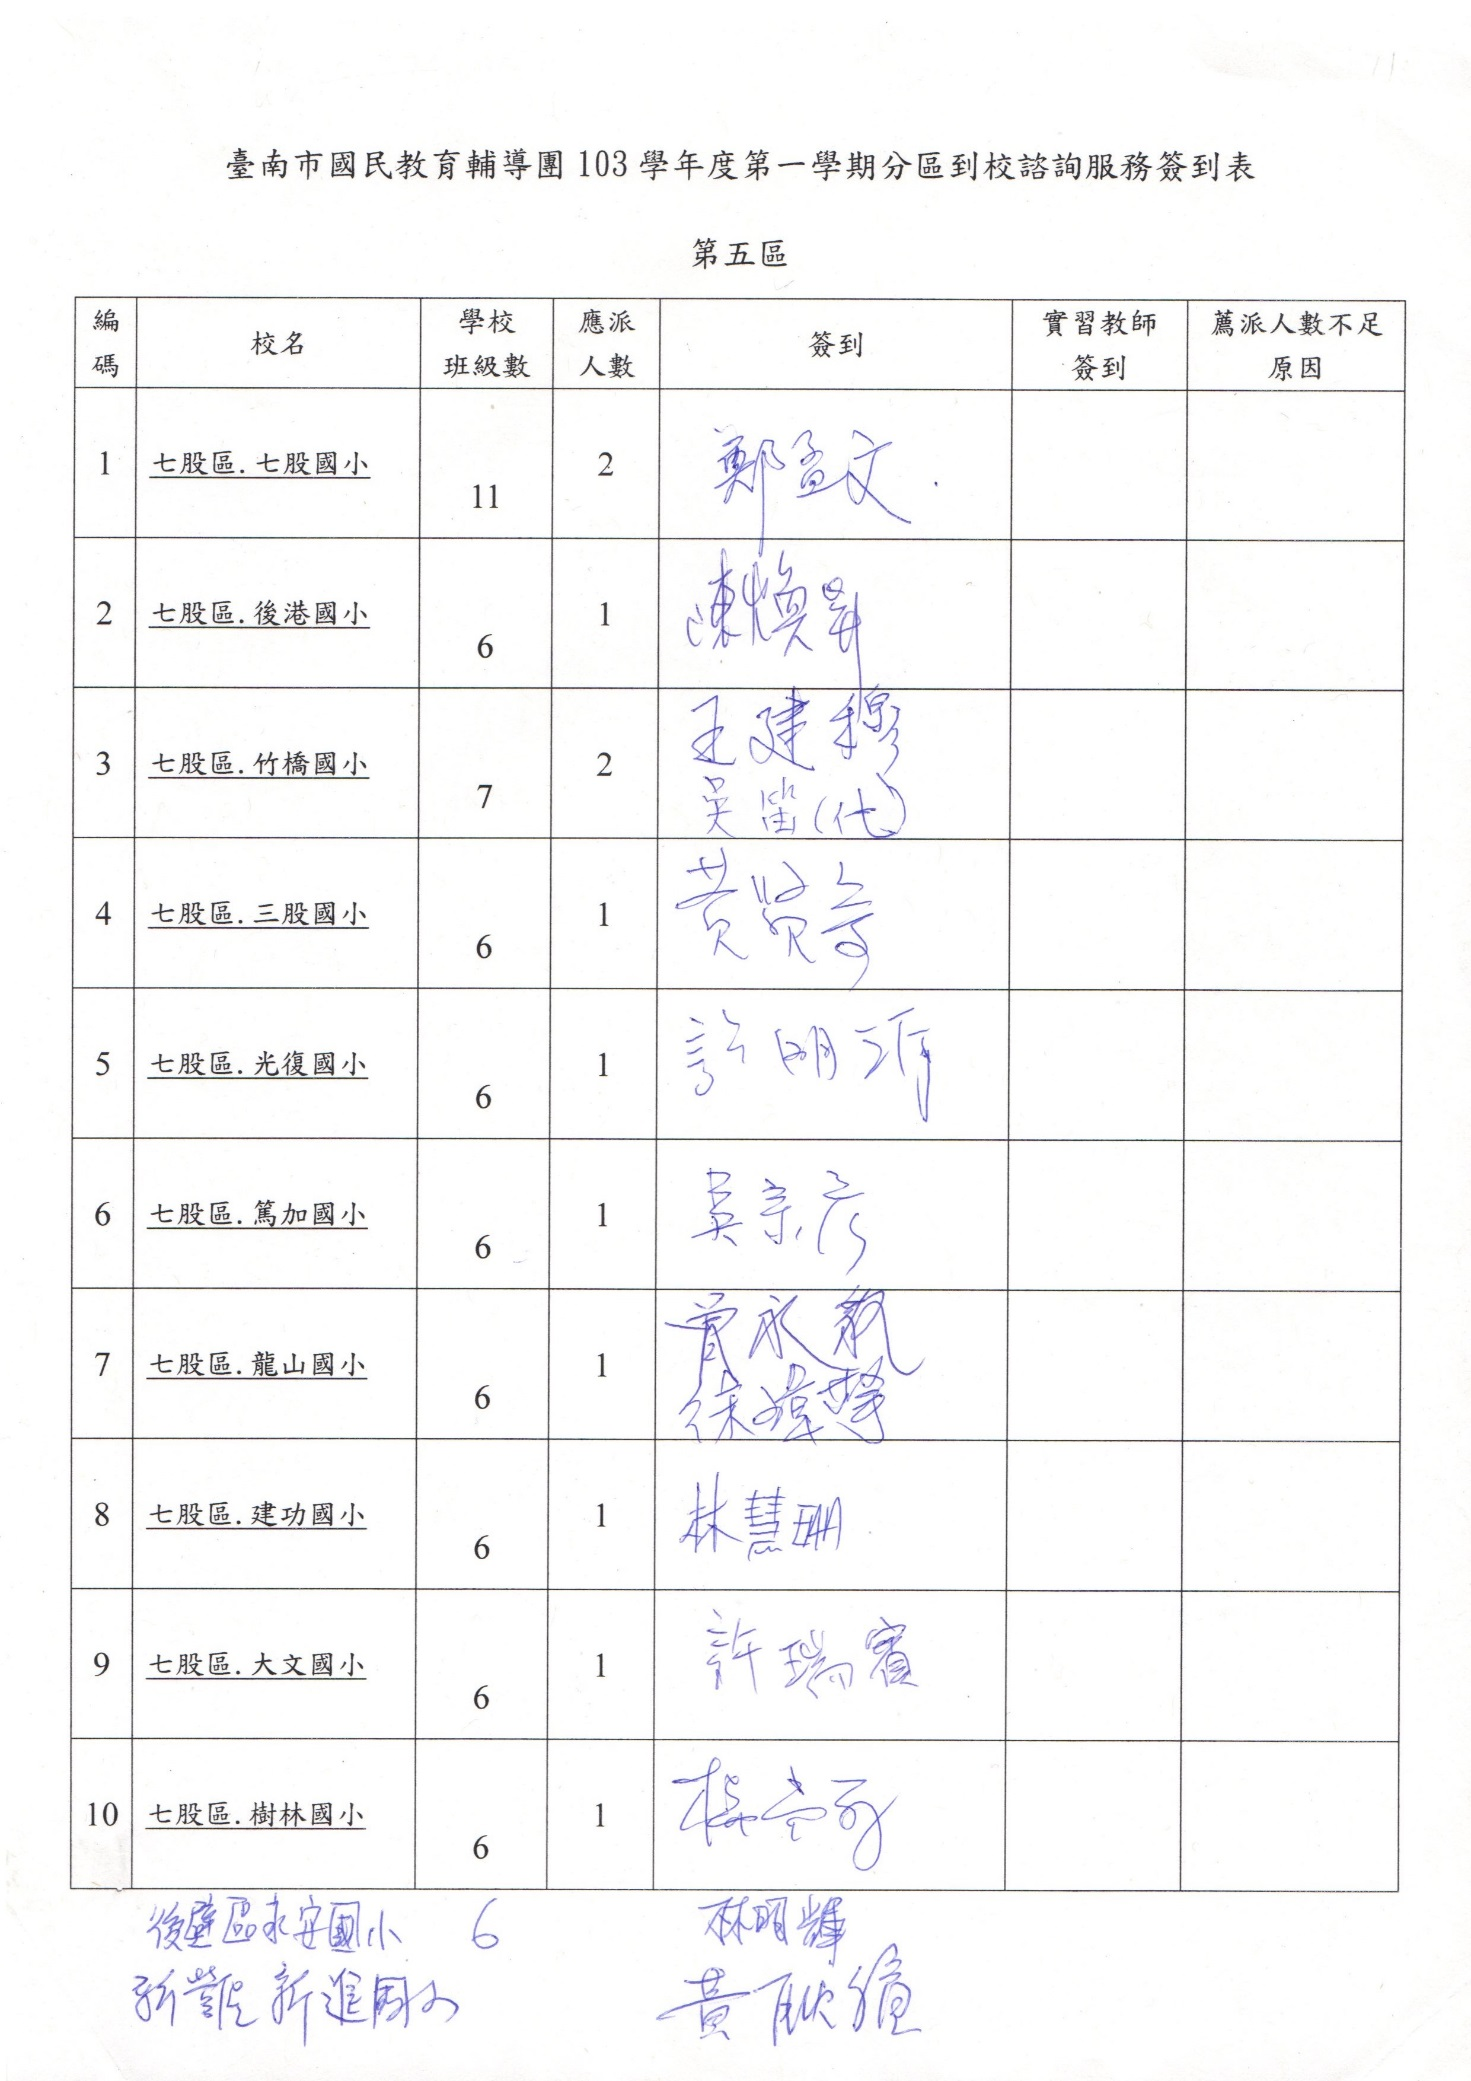 臺南市國民教育輔導團 103 學年度第一學期分區到校諮詢服務簽到表
第五區
編碼 校名 學校班級數 應派人數 簽到 實習教師簽到 薦派人數不足原因
1 七股區.七股國小 11 2 鄭孟文
2 七股區.後港國小 6 1 陳煥昇
3 七股區.竹橋國小 7 2 王建穆
吳笛(代)
4 七股區.三股國小 6 1 黃賢奇
5 七股區.光復國小 6 1 許明
6 七股區.篤加國小 6 1 吳宗彥
7 七股區.龍山國小 6 1 曾永
徐
8 七股區.建功國小 6 1 林慧珊
9 七股區.大文國小 6 1 許瑞賓
10 七股區.樹林國小 6 1
後壁區永安國小 6 林明輝
新營區新進國小 黃